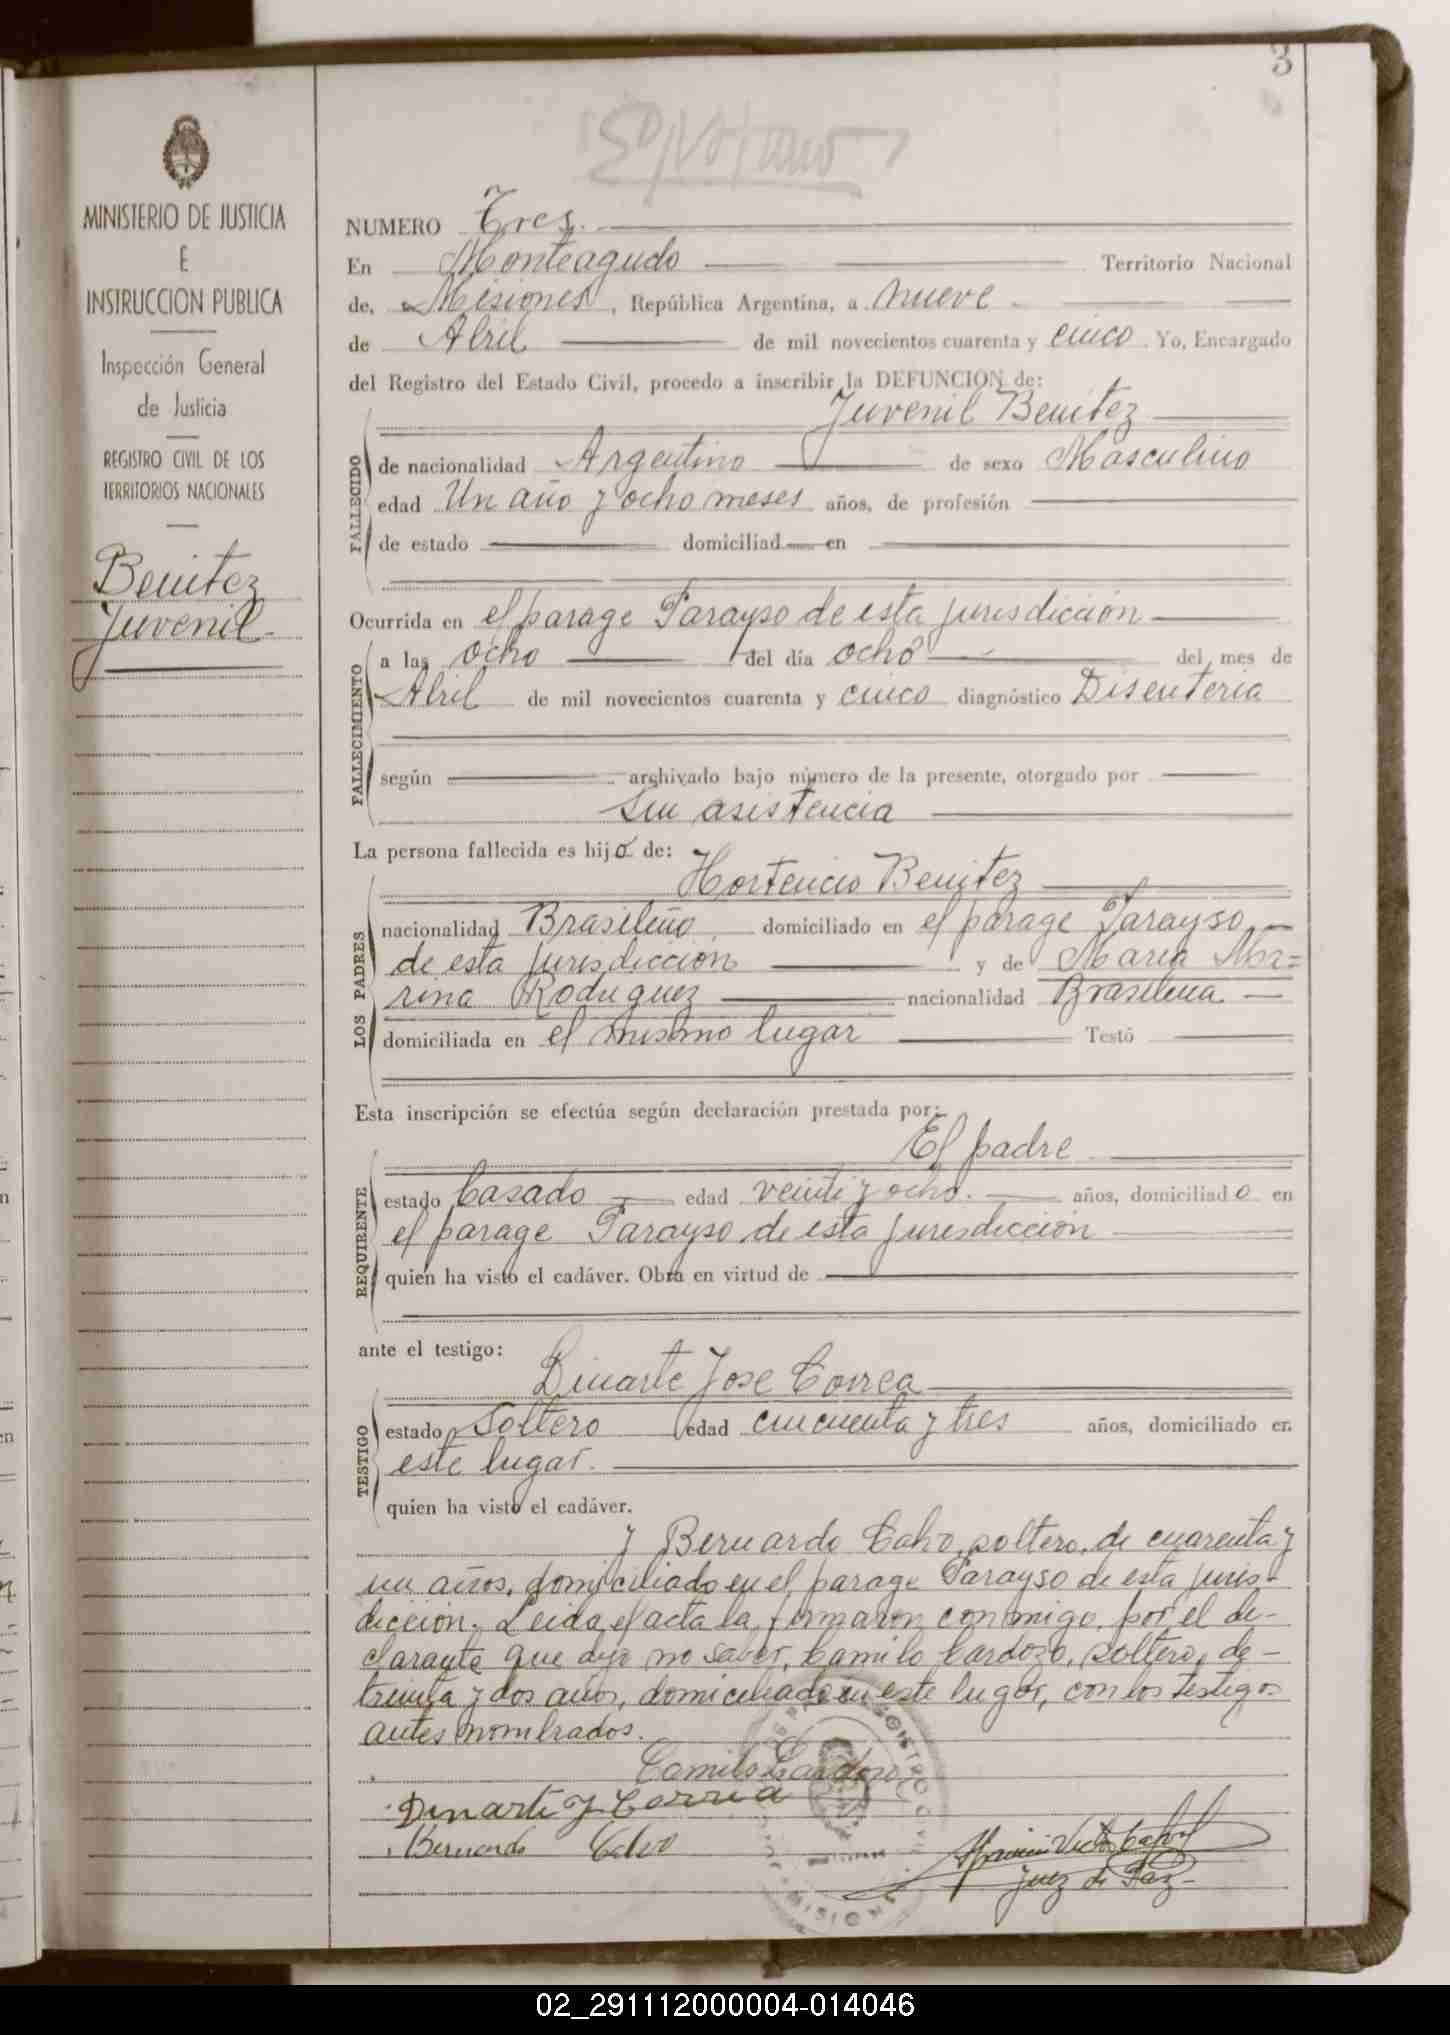 3
MINISTERIO DE JUSTICIA
E
INSTRUCCION PUBLICA
Inspección General
de Justicia
REGISTRO CIVIL DE LOS
TERRITORIOS NACIONALES
Benitez
Juvenil
NUMERO Tres.
En Monteagudo Territorio Nacional
de, Misiones, República Argentina, a nueve
de Abril de mil novecientos cuarenta y cinco. Yo, Encargado
del Registro del Estado Civil, procedo a inscribir la DEFUNCION de:
Juvenil Benitez
FALLECIDO
de nacionalidad Argentino de sexo Masculino
edad Un año y ocho meses años, de profesión
de estado domiciliad en
Ocurrida en el parage Parayso de esta jurisdicción
FALLECIMIENTO
a las ocho del día ocho del mes de
Abril de mil novecientos cuarenta y cinco diagnóstico Disenteria
según archivado bajo número de la presente, otorgado por
Sin asistencia
La persona fallecida es hijo de:
Hortencio Benitez
LOS PADRES
nacionalidad Brasileño domiciliado en el parage Parayso
de esta jurisdicción y de Maria Ma=
rina Rodriguez nacionalidad Brasilena
domiciliada en el mismo lugar Testó
Esta inscripción se efectúa según declaración prestada por:
El padre
REQUIRENTE
estado Casado edad veinti y ocho. años, domiciliado en
el parage Parayso de esta jurisdicción
quien ha visto el cadáver. Obra en virtud de
ante el testigo:
Dinarte Jose Correa
TESTIGO
estado Soltero edad cincuenta y tres años, domiciliado en
este lugar.
quien ha visto el cadáver.
y Bernardo soltero, de cuarenta y
un años, domiciliado en el parage Parayso de esta juris-
dicción. Leida el acta la firmaron conmigo, por el de-
clarante que dijo no saber, Camilo Cardozo, soltero, de-
treinta y dos años, domiciliado en este lugar, con los testigos
antes nombrados.
Camilo Cardozo
Dinarte J Correa
Bernardo
Juez de Paz
MISIONES
02_291112000004-014046